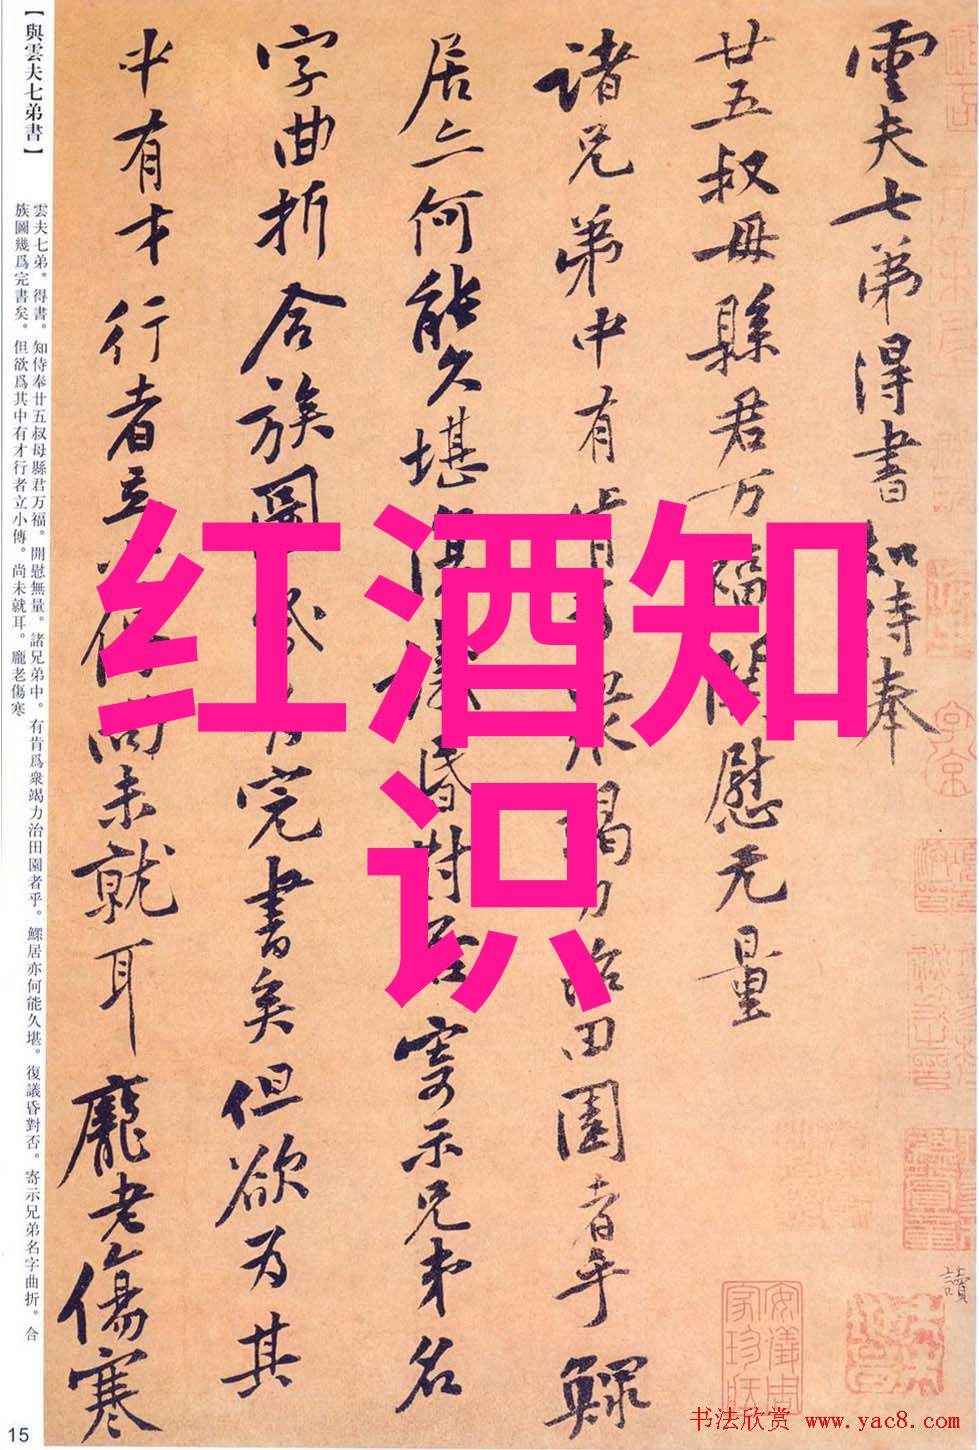 【與雲夫七弟書】
雲夫七弟。得書。知侍奉廿五叔母縣君万福。開慰無量。諸兄弟中。有肯爲衆竭力治田園者乎。鰥居亦何能久堪。復議昏對否。寄示兄弟名字曲折。合
族圖幾爲完書矣。但欲爲其中有才行者立小傳。尚未就耳。龐老傷寒
15
雲夫七弟得書知侍奉
廿五叔母縣君万福開慰无量
諸兄弟中有肯为衆竭力治田園者乎鰥
居亦何能久堪復議昏對否寄示兄弟名
字曲折合族圖幾为完書矣但欲为其
中有才行者立小傳尚未就耳龐老傷寒
讀
安儀周
家珍藏
红酒知
识
书法欣赏 www.yac8.com